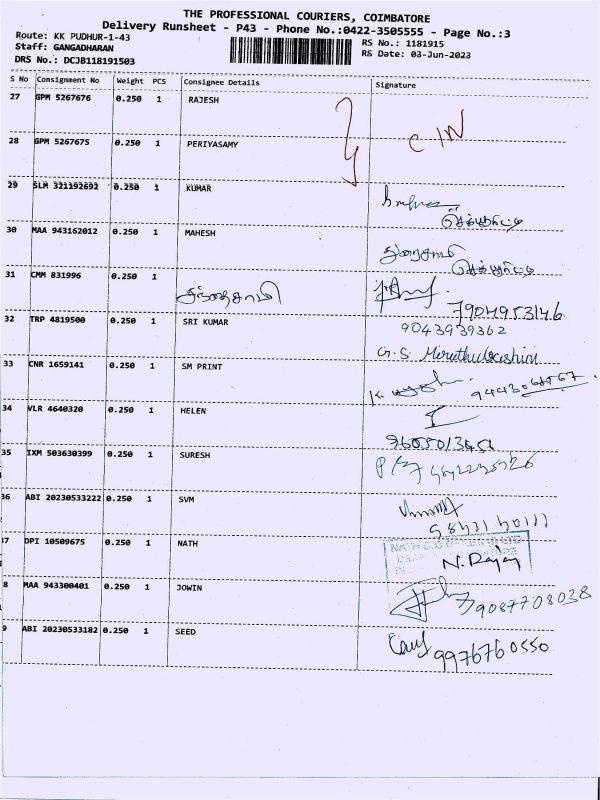 THE PROFESSIONAL COURIERS, COIMBATORE
Delivery Runsheet - P43 - Phone No.:0422-3505555 - Page No.:3
Route: KK PUDHUR-1-43
RS No.: 1181915
Staff: GANGADHARAN
RS Date: 03-Jun-2023
DRS No.: DCJB118191503
S No Consignment No Weight PCS Consignee Details Signature
27 GPM 5267676 0.250 1 RAJESH
C IN
28 GPM 5267675 0.250 1 PERIYASAMY
29 SLM 321192692 0.250 1 KUMAR
30 MAA 943162012 0.250 1 MAHESH
31 CMM 831996 0.250 1
7904953146
32 TRP 4819500 0.250 1 SRI KUMAR
9043939362
G.S
33 CNR 1659141 0.250 1 SM PRINT
34 VLR 4640320 0.250 1 HELEN
35 IXM 503630399 0.250 1 SURESH
36 ABI 20230533222 0.250 1 SVM
7 DPI 10509675 0.250 1 NATH
N. Rajay
8 MAA 943300401 0.250 1 JOWIN
9087708038
9 ABI 20230533182 0.250 1 SEED
9976760550